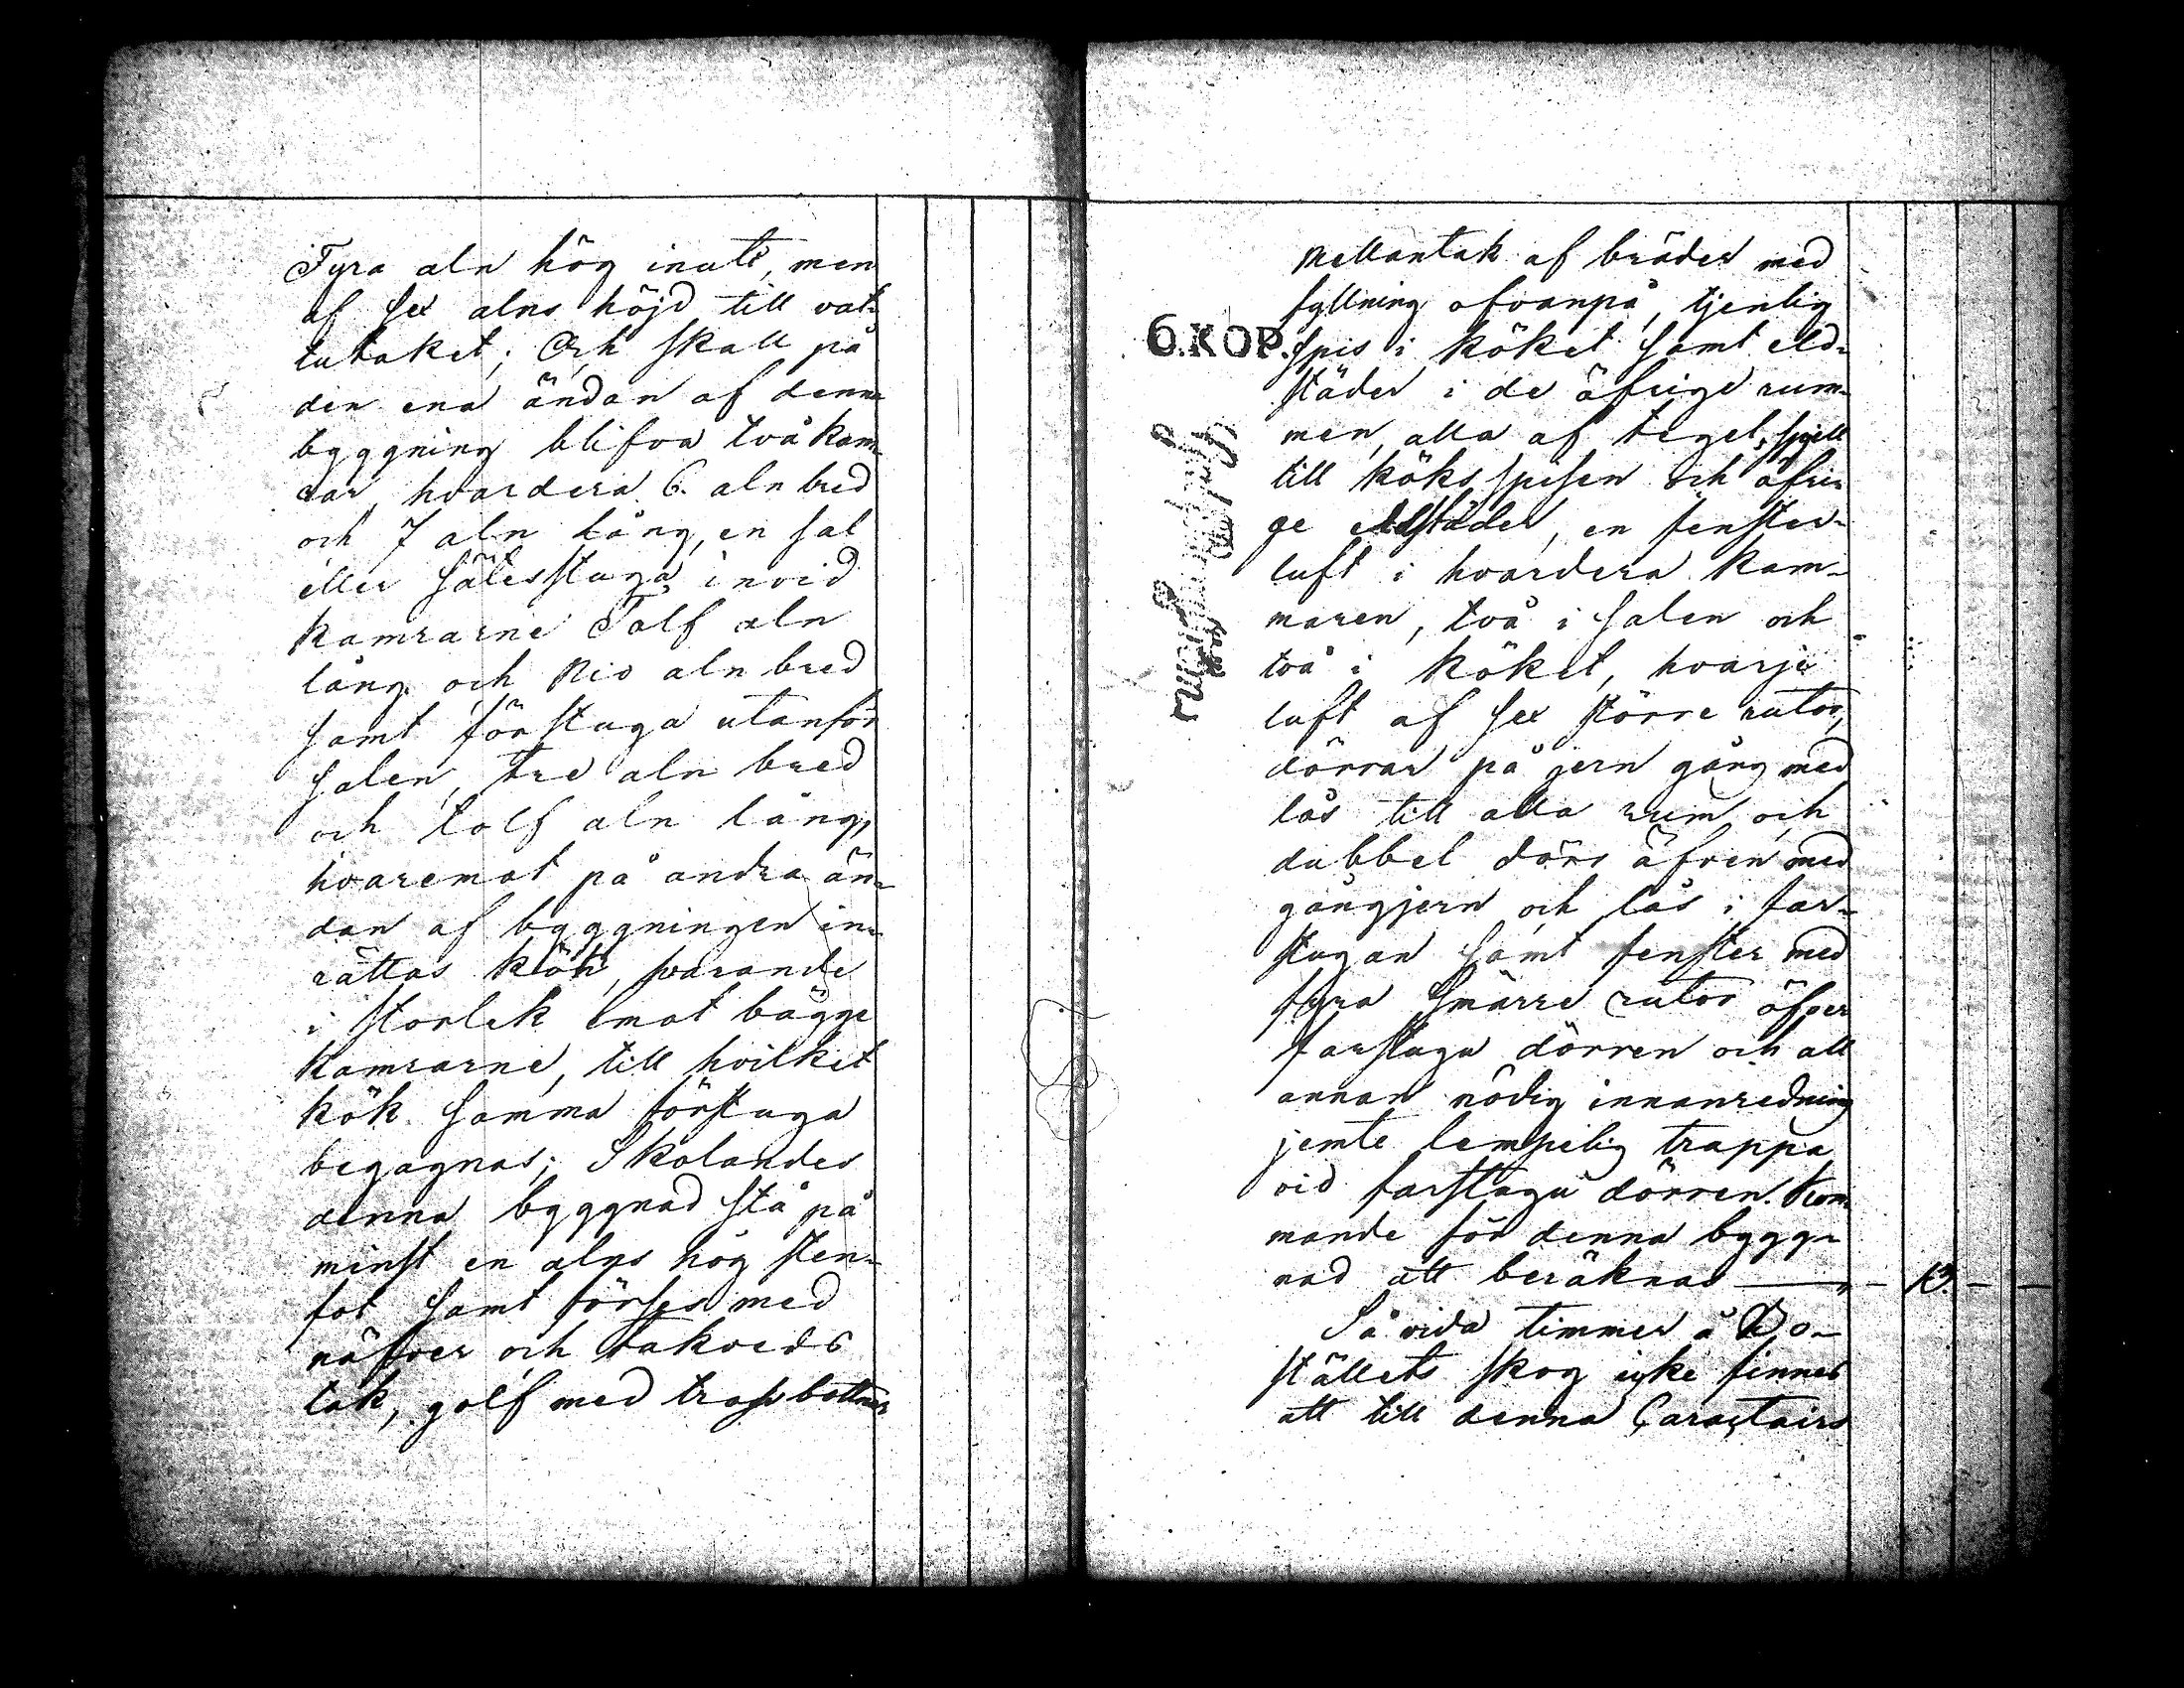 Tyra aln hög inuti, men
af sex alns höjd till vat-
tutaket; Och skall på
den ena ändan af denna
byggning blifva två kam-
rar, hvardera 6. aln bred
och 7 aln lång, en sal
eller sätesstuga invid
kamrarne Tolf aln
lång och Nio aln bred
samt förstuga utanför
salen, tre aln bred
och tolf aln lång,
hvaremot på andra än-
dan af byggningen in-
rättas kök, svarande
i storlek emot bägge
kamrarne, till hvilket
kök samma förstuga
begagnas; Skolandes
denna byggnad stå på
minst en alns hög sten-
fot samt förses med
näfver och takveds
tak, golf med trossbottnar
Mellantak af bräder med
fyllning ofvanpå, tjenlig
6.KOP.
spis i köket samt eld-
städer i de öfrige rum-
men, alla af tegel, spjell
till köksspisen och öfri-
ge eldstäder, en fenster-
luft i hvardera kam-
maren, två i salen och
två i köket, hvarje
luft af sex större rutor,
dörrar på jern gång med
lås till alla rum och
dubbel dörr äfven med
gångjern och lås i far-
stugan samt fenster med
fyra smärre rutor öfver
farstugu dörren och all
annan nödig innanredning
jemte lempelig trappa
vid farstugu dörren. Kom-
mande för denna bygg-
nad att beräknas — 13. —
Så vida timmer å Bo-
ställets skog icke finnes
att till denna Caractairs